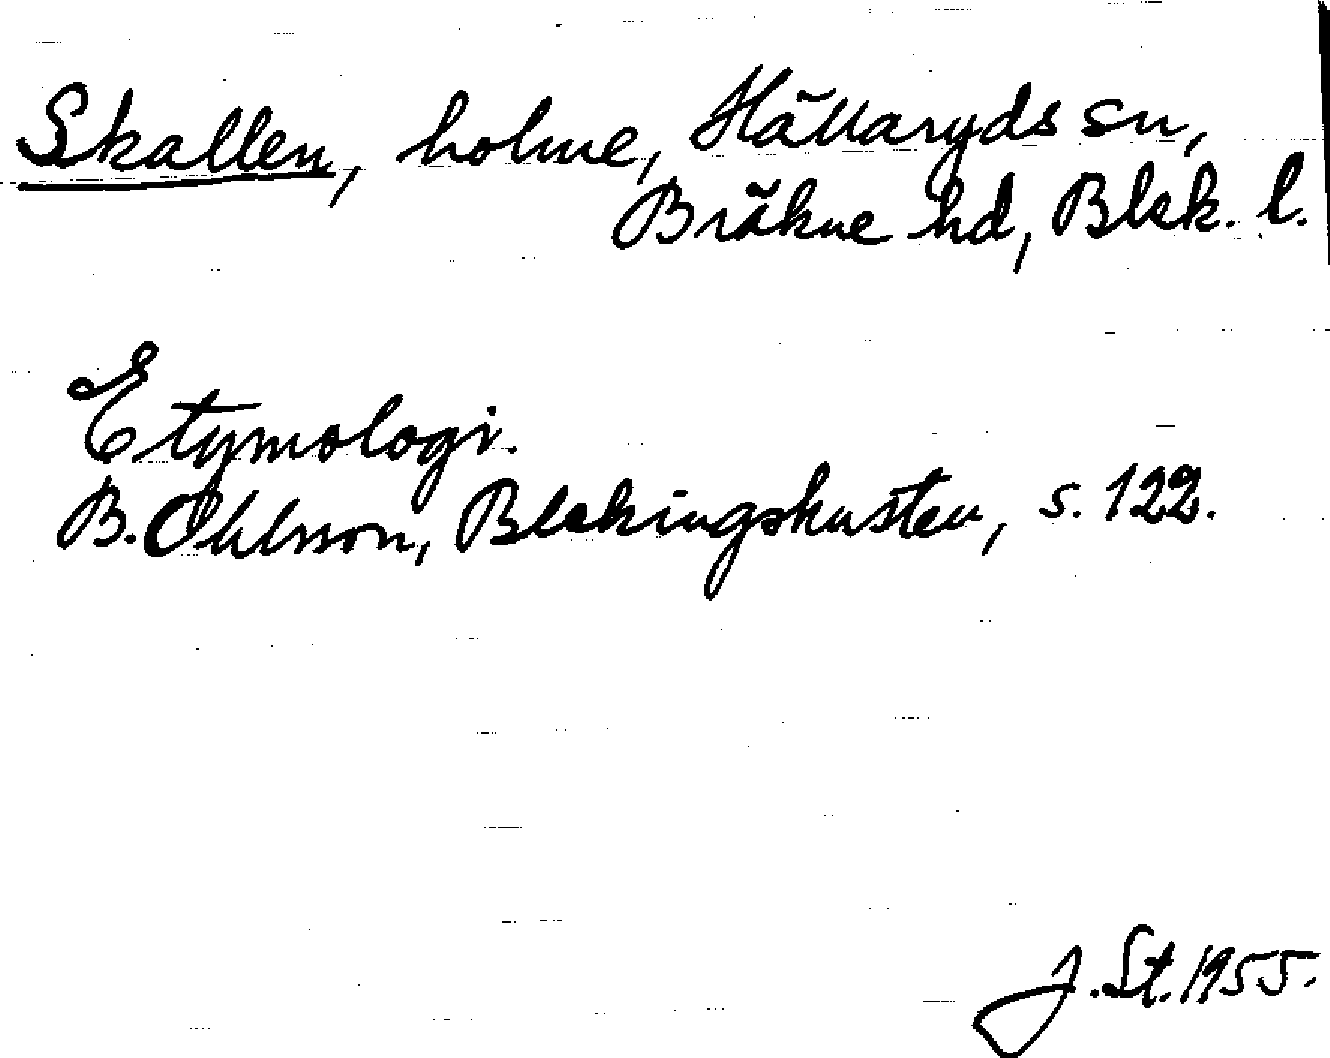 Skallen, holme, Hällaryds sn,
Bräkne hd, Blek. l.
Etymologi.
B. Ohlsson, Blekingskusten, s. 122.
J. St. 1955.